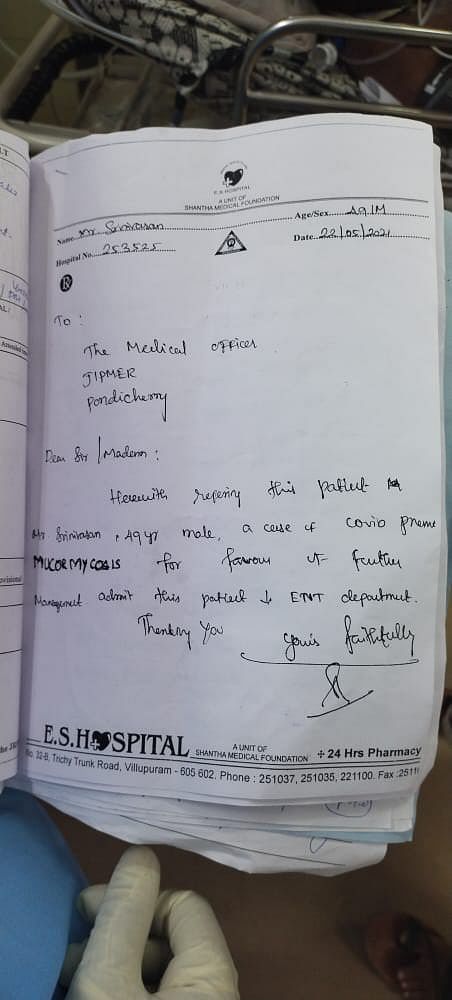 E.S.HOSPITAL
A UNIT OF
SHANTHA MEDICAL FOUNDATION
Name Mr Srinivasan Age/Sex 49/M
Hospital No. 253525 Date 22/05/2021
R
To :
The Medical officer
JIPMER
Pondicherry
Dear Sir / Madam :
Herewith refering this patient
Mr Srinivasan, 49 yr male, a case of covid pneumo
MUCORMYCOSIS for favour of further
Management admit this patient ↓ ENT department.
Thanking You
yours faithfully
E.S.HOSPITAL A UNIT OF SHANTHA MEDICAL FOUNDATION + 24 Hrs Pharmacy
No. 32-B, Trichy Trunk Road, Villupuram - 605 602. Phone : 251037, 251035, 221100. Fax :2511